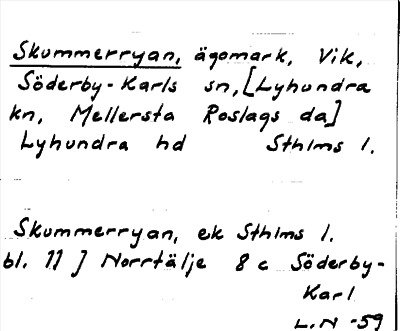 Skummerryan, ägomark, Vik,
Söderby-Karls sn, [Lyhundra
kn, Mellersta Roslags da]
Lyhundra hd Sthlms l.
Skummerryan, ek Sthlms l.
bl. 11 J Norrtälje 8 c Söderby-
Karl
L.N -59